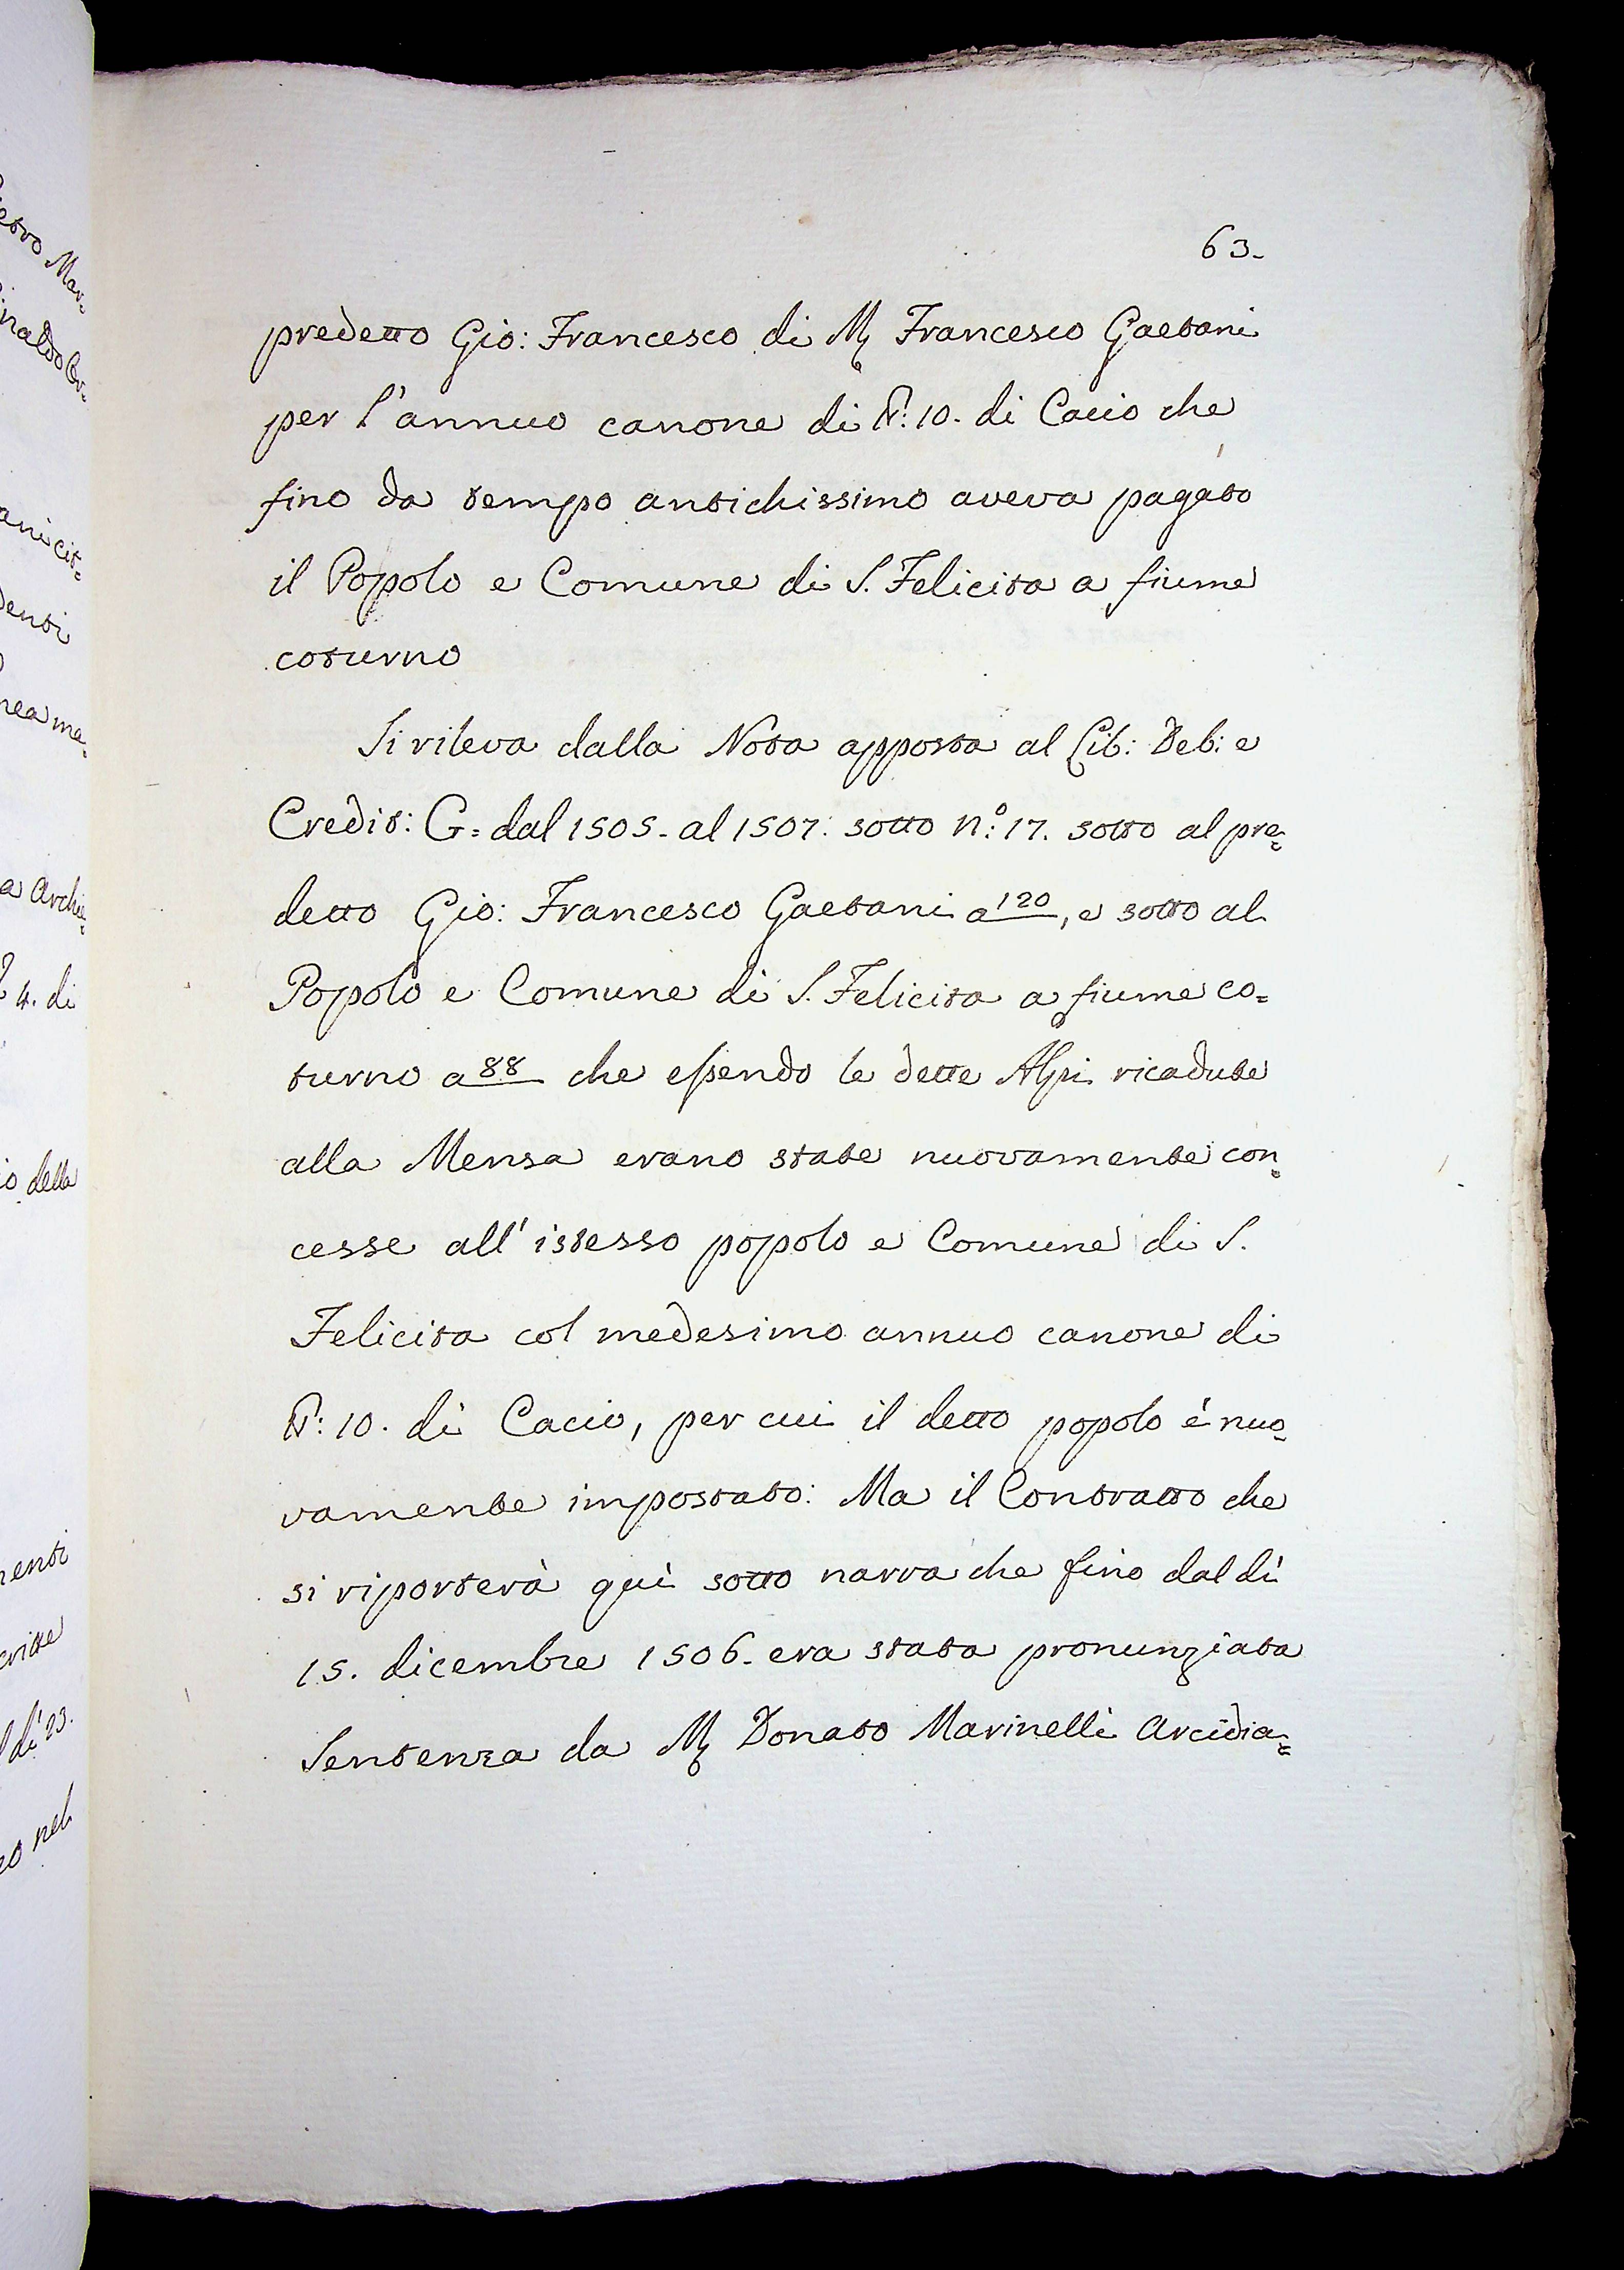 63.
predetto Gio: Francesco di M Francesco Gaetani
per l'annuo canone di ₶: 10. di Cacio che
fino da tempo antichissimo aveva pagato
il Popolo e Comune di S. Felicita a fiume
coturno
Si rileva dalla Nota apposta al Lib: Deb: e
Credit: G= dal 1505. al 1507. sotto n:° 17. sotto al pre=
detto Gio: Francesco Gaetani a 120, e sotto al
Popolo e Comune di S. Felicita a fiume co=
turno a 88 che essendo le dette Alpi ricadute
alla Mensa erano state nuovamente con=
cesse all' istesso popolo e Comune di S.
Felicita col medesimo annuo canone di
₶: 10. di Cacio, per cui il detto popolo é nuo=
vamente impostato: Ma il Contratto che
si riporterà qui sotto narra che fino dal dì
15. dicembre 1506. era stata pronunziata
Sentenza da M Donato Marinelli Arcidia=